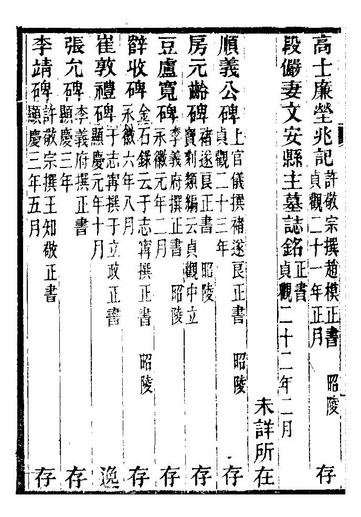 高士廉塋兆記許敬宗撰趙模正書 昭陵 存
貞觀二十一年正月
段儼妻文安縣主墓誌銘正書 未詳所在
貞觀二十二年二月
順義公碑上官儀撰褚遂良正書 昭陵 存
貞觀二十三年
房元齡碑褚遂良正書 昭陵 存
寶刻類編云貞觀中立
豆盧寬碑李義府撰正書 昭陵 存
永徽元年六月
薛收碑金石錄云于志寧撰正書 昭陵 存
永徽六年八月
崔敦禮碑于志寧撰于立政正書 逸
顯慶元年十月
張允碑李義府撰正書 存
顯慶三年
李靖碑許敬宗撰王知敬正書 昭陵 存
顯慶三年五月